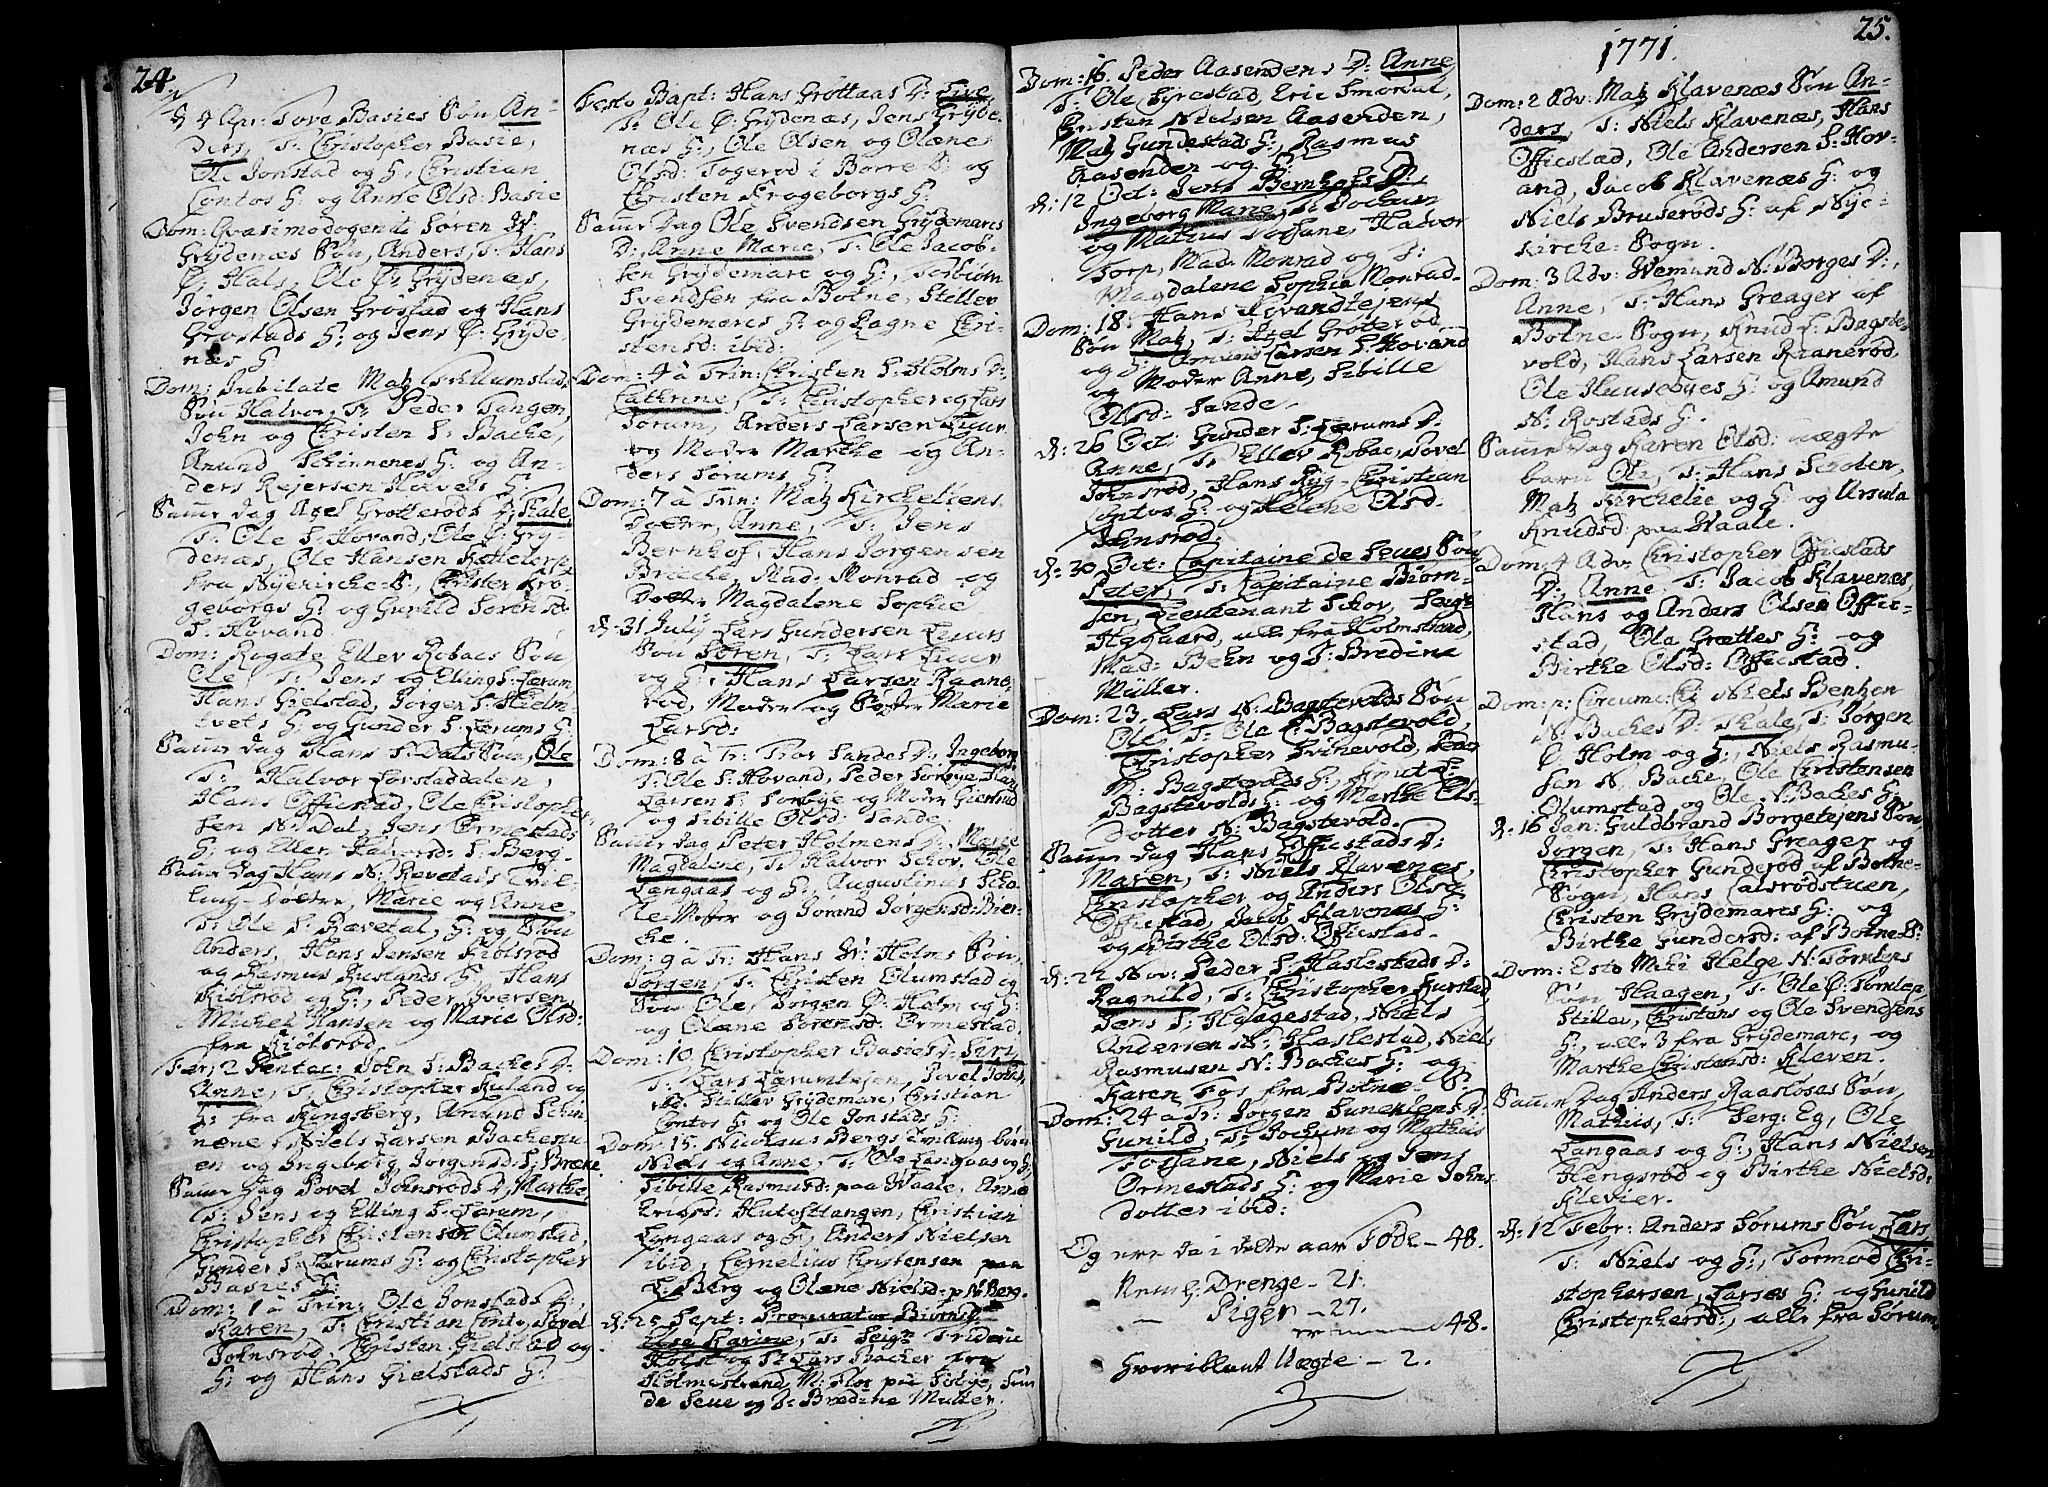 24.
d: 4 Apr: Tove Basies Søn An-
ders, T: Christopher Basie,
Ole Jonstad og H, Christian
Contos H: og Anne Olsd: Basie
Dom: Qvasimodogenit Søren N:
Grydenæs Søn, Anders, T: Hans
Ø: Hals, Ole Ø: Grydenæs,
Jørgen Olsen Grøstad og Hans
Grøstads H: og Jens Ø: Gryde-
næs H
Dom: Jubilate Matz Ullumstad
Søn Halvor, T: Peder Tangen,
John og Christen S: Backe,
Amund Schinnenes H: og An-
ders Rejersen H:
Samme dag Axel Grotterøds D: Kale
T: Ole S: Hovand, Ole Ø: Gry-
denæs, Ole Hansen
fra Nyekirche S:, Christen Kro-
geborgs H: og Gunild Sørensd:
S: Hovand
Dom: Rogate Ellev Robacs Søn
Ole, T: Jens og Elling S: Lærum
Hans Gielstad, Jørgen S: Hielm-
tvets H: og Gunder S: Lærums H:
Samme dag Hans S: Dals Søn, Ole
T: Halvor Forstaddalen,
Hans Officstad, Ole Christopher-
sen N: Dal, Jens Ormestads
H: og Ellen Halvorsd: S: Berg
Samme dag Hans N: Revetals Tvil-
ling-Døttre, Marie og Anne
T: Ole S: Rævetal, H: og Søn
Anders, Hans Jensen Kiølsrød
og Rasmus H: Hans
Kiølsrød og H:, Peder Iversen,
Michel Hansen og Marie Olsd:
fra Kiølsrød
Fer: 2 Pentec: John S: Backes D:
Anne, T: Christopher Ruland og
H: fra Kongsberg, Amund Schin-
næne, Niels Larsen Backestu-
en og Ingeborg Jørgensd: S: Bræke
Samme dag Povel Johnsrøds D: Marthe
T: Jens og Elling S: Lærum,
Christopher Christensen Olumstad,
Gunder S: Lærums H: og Christopher
Basies H:
Dom: 1 à Trin: Ole Jonstads D:,
Karen, T: Christian Conto, Povel
Johnsrød, Christen Gielstad og
H: og Hans Gielstads H:
Festo Bapt: Hans Grottaas D: Sive
T: Ole Ø: Grydenæs, Jens Gryde-
næs H:, Ole Olsen og Olæne
Olsd: Togerød i Borre S: og
Christen Krogeborgs H:
Samme dag Ole Svendsen Grydemares
D: Anne Marie, T: Ole Jacob-
sen Grydemare og H:, Torbiørn
Svendsen fra Botne, Stillev
Grydemares H: og Ragne Chri-
stensd: ibid:
Dom: 4 à Trin: Christen S: Holms D:
Cathrine, T: Christopher og Lars
Sørum, Anders Larsen
og Moder Marthe og An-
ders Sørums H:
Dom: 7 à Trin: Matz Kirchelies
Datter, Anne, T: Jens
Bernhof, Hans Jørgensen
Bræcke, Mad: Monrad og
Datter Magdalene Sophie
d: 31 July Lars Gundersen
Søn Søren, T: Lars
og H:, Hans Larsen Raane-
rød, Moder og Søster Marie
Larsd:
Dom: 8 à Tr: Tror Sandes D: Ingeborg
T: Ole S: Hovand, Peder Sørbye, Hans
Larsen S: Sørbye og Moder Giertrud
og Sibille Olsd: Sande
Samme dag Peter Holmens D: Marie
Magdalene, T: Halvor Schov, Ole
Langaas og H:, Augustinus Scho-
le-Mester og Jørand Jørgensd: Bier-
che.
Dom: 9 à Tr: Hans N: Holms Søn
Jørgen, T: Christen Olumstad og
Søn Ole, Jørgen Ø: Holm og H:
og Olæne Sørensd: Ormestad
Dom: 10 Christopher Basies D: Siri
T: Lars Lærumtejen, Povel Johns-
rød, Stillev Grydemare, Christian
Contos H: og Ole Jonstads H:
Dom: 15. Nicolaus Bergs Tvilling børn
Niels og Anne, T: Ole Langaas og H:
Sibille Rasmusd: paa Waale, Anne
Ericsd: Christian
Langaas og H:, Anders Nielsen
ibid, Cornelius Christensen paa
S: Berg og Olæne Nielsd: p: N: Berg.
d: 25 Sept: Procurator Biørns D:
Else Karine, T: Seigr Frideric
Holst og Sr Lars Backer fra
Holmestrand, M: Flor paa Sisbye, Frue
de Seue og J: Bredine Müller
Dom: 16. Peder Aasendens D: Anne
T: Ole Fyrestad, Eric
Christen Nielsen Aasenden,
Matz Gundestads H:, Rasmus
Aasenden og H:
d: 12 Oct: Jens Bernhofs D:
Ingeborg Marie, T: Jochum
og Mathis Halvor
Torp, Mad: Monrad og J:
Magdalene Sophia Monrad
Dom: 18: Hans Hovandtejens
Søn Matz, T: Axel Grøterød
og H: Amund Larsen S: Hovand
og Moder Anne, Sibille
Olsd: Sande
d: 26 Oct: Gunder S: Lærums D:
Anne, T: Ellev Robac, Povel
Johnsrød, Hans Ryg- Christian
Contos H: og Helene Olsd:
Johnsrød:
d: 30 Oct: Capitaine de Seues Søn
Peter, T: Capitaine Biørn-
sen, Lieutenant Schov, Seigr
Hegaard, alle fra Holmstrand,
Mad: Behn og J: Bredine
Müller.
Dom: 23. Lars N: Bagstevolds Søn
Ole, T: Ole S: Bagstevold,
Christopher Svinevold, Peder
N: Bagstevolds H:, Knut S:
Bagstevolds H: og Marthe Ols-
dotter N: Bagstevold.
Samme dag Hans Officstads D:
Maren, T: Niels Klavenæs,
Christopher og Anders Olsen
Officstad, Jacob Klavenæs H:
og Birthe Olsd: Officstad.
d: 22 Nov: Peder S: Haslestads D:
Ragnild, T: Christopher
Jens S: Haagestad, Niels
Andersen N: Haslestad, Niels
Rasmusen N: Backes H: og
Karen Fos fra Botne S:
Dom: 24 à Tr: Jørgen D:
Gunild, T: Jochum og Mathis
Niels og Jens
Ormestads H: og Marie Johns
dotter ibid:
Og ere da i dette aar Føde - 48.
Neml: Drenge - 21.
— Piger - 27.
48.
hvoriblant Uægte - 2.
25.
1771.
Dom: 2 Adv: Matz Klavenæs Søn An-
ders, T: Niels Klavenæs, Hans
Officstad, Ole Andersen S: Hov-
and, Jacob Klavenæs H: og
Niels Bruserøds H: af Nye-
kirche-Sogn.
Dom: 3 Adv: Wemund N: Borges D:,
Anne, T: Hans Greager af
Botne-Sogn, Knud S: Bagste-
vold, Hans Larsen Raanerød,
Ole Huusebyes H: og Amund
N: Rostads H:
Samme dag Karen Olsd: uægte
barn Ole, T: Hans Scholen,
Matz Kirchelie og H: og Ursula
Knudsd: paa Waale.
Dom: 4 Adv: Christopher Officstads
D:, Anne T: Jacob Klavenæs,
Hans og Anders Olsen Offic-
stad, Ole Grøttes H: og
Birthe Olsd: Officstad.
Dom: p: Circumc: Niels Bentzen
N: Backes D: Kale, T: Jørgen
Ø: Holm og H:, Niels Rasmu-
sen N: Backe, Ole Christensen
Olumstad og Ole N: Backes H:
d: 16 Jan: Guldbrand Borgetejens Søn
Jørgen, T: Hans Greager og
Christopher Gunderød af Botne-
Sogn, Hans Calsrødstuen,
Christen Grydemares H: og
Birthe Gundersd: af Botne S:
Dom: Esto Mihi Helge N: Tømleps
Søn Haagen, T: Ole Ø: Tømlep,
Stillev, Christens og Ole Svendsens
H:, alle 3 fra Grydemare, og
Marthe Christensd: Kleven.
Samme dag Anders Raasløsas Søn
Mathis, T: Serg: Eg, Ole
Langaas og H:, Hans Nielsen
Hengsrød og Birthe Nielsd:
Klevier.
d: 12 Febr: Anders Sørums Søn Lars
T: Niels og H:, Tormod Chri-
stophersen, Larses H: og Gunild
Christophersd:, alle fra Sørum